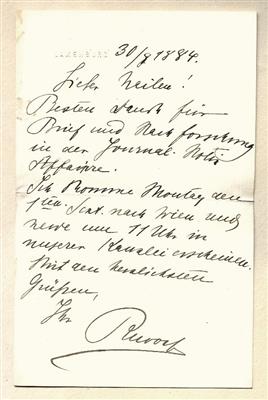 LAXENBURG 30/8 1884.
Lieber Weilen!
Besten Dank für
Brief und Nachforschung
in der Journal-Notiz
Affaire.
Ich komme Montag den
1ten Sept. nach Wien und
um 11 Uhr in
meiner Kanzlei erscheinen.
Mit den herzlichsten
Grüßen,
Ihr
Rudolf